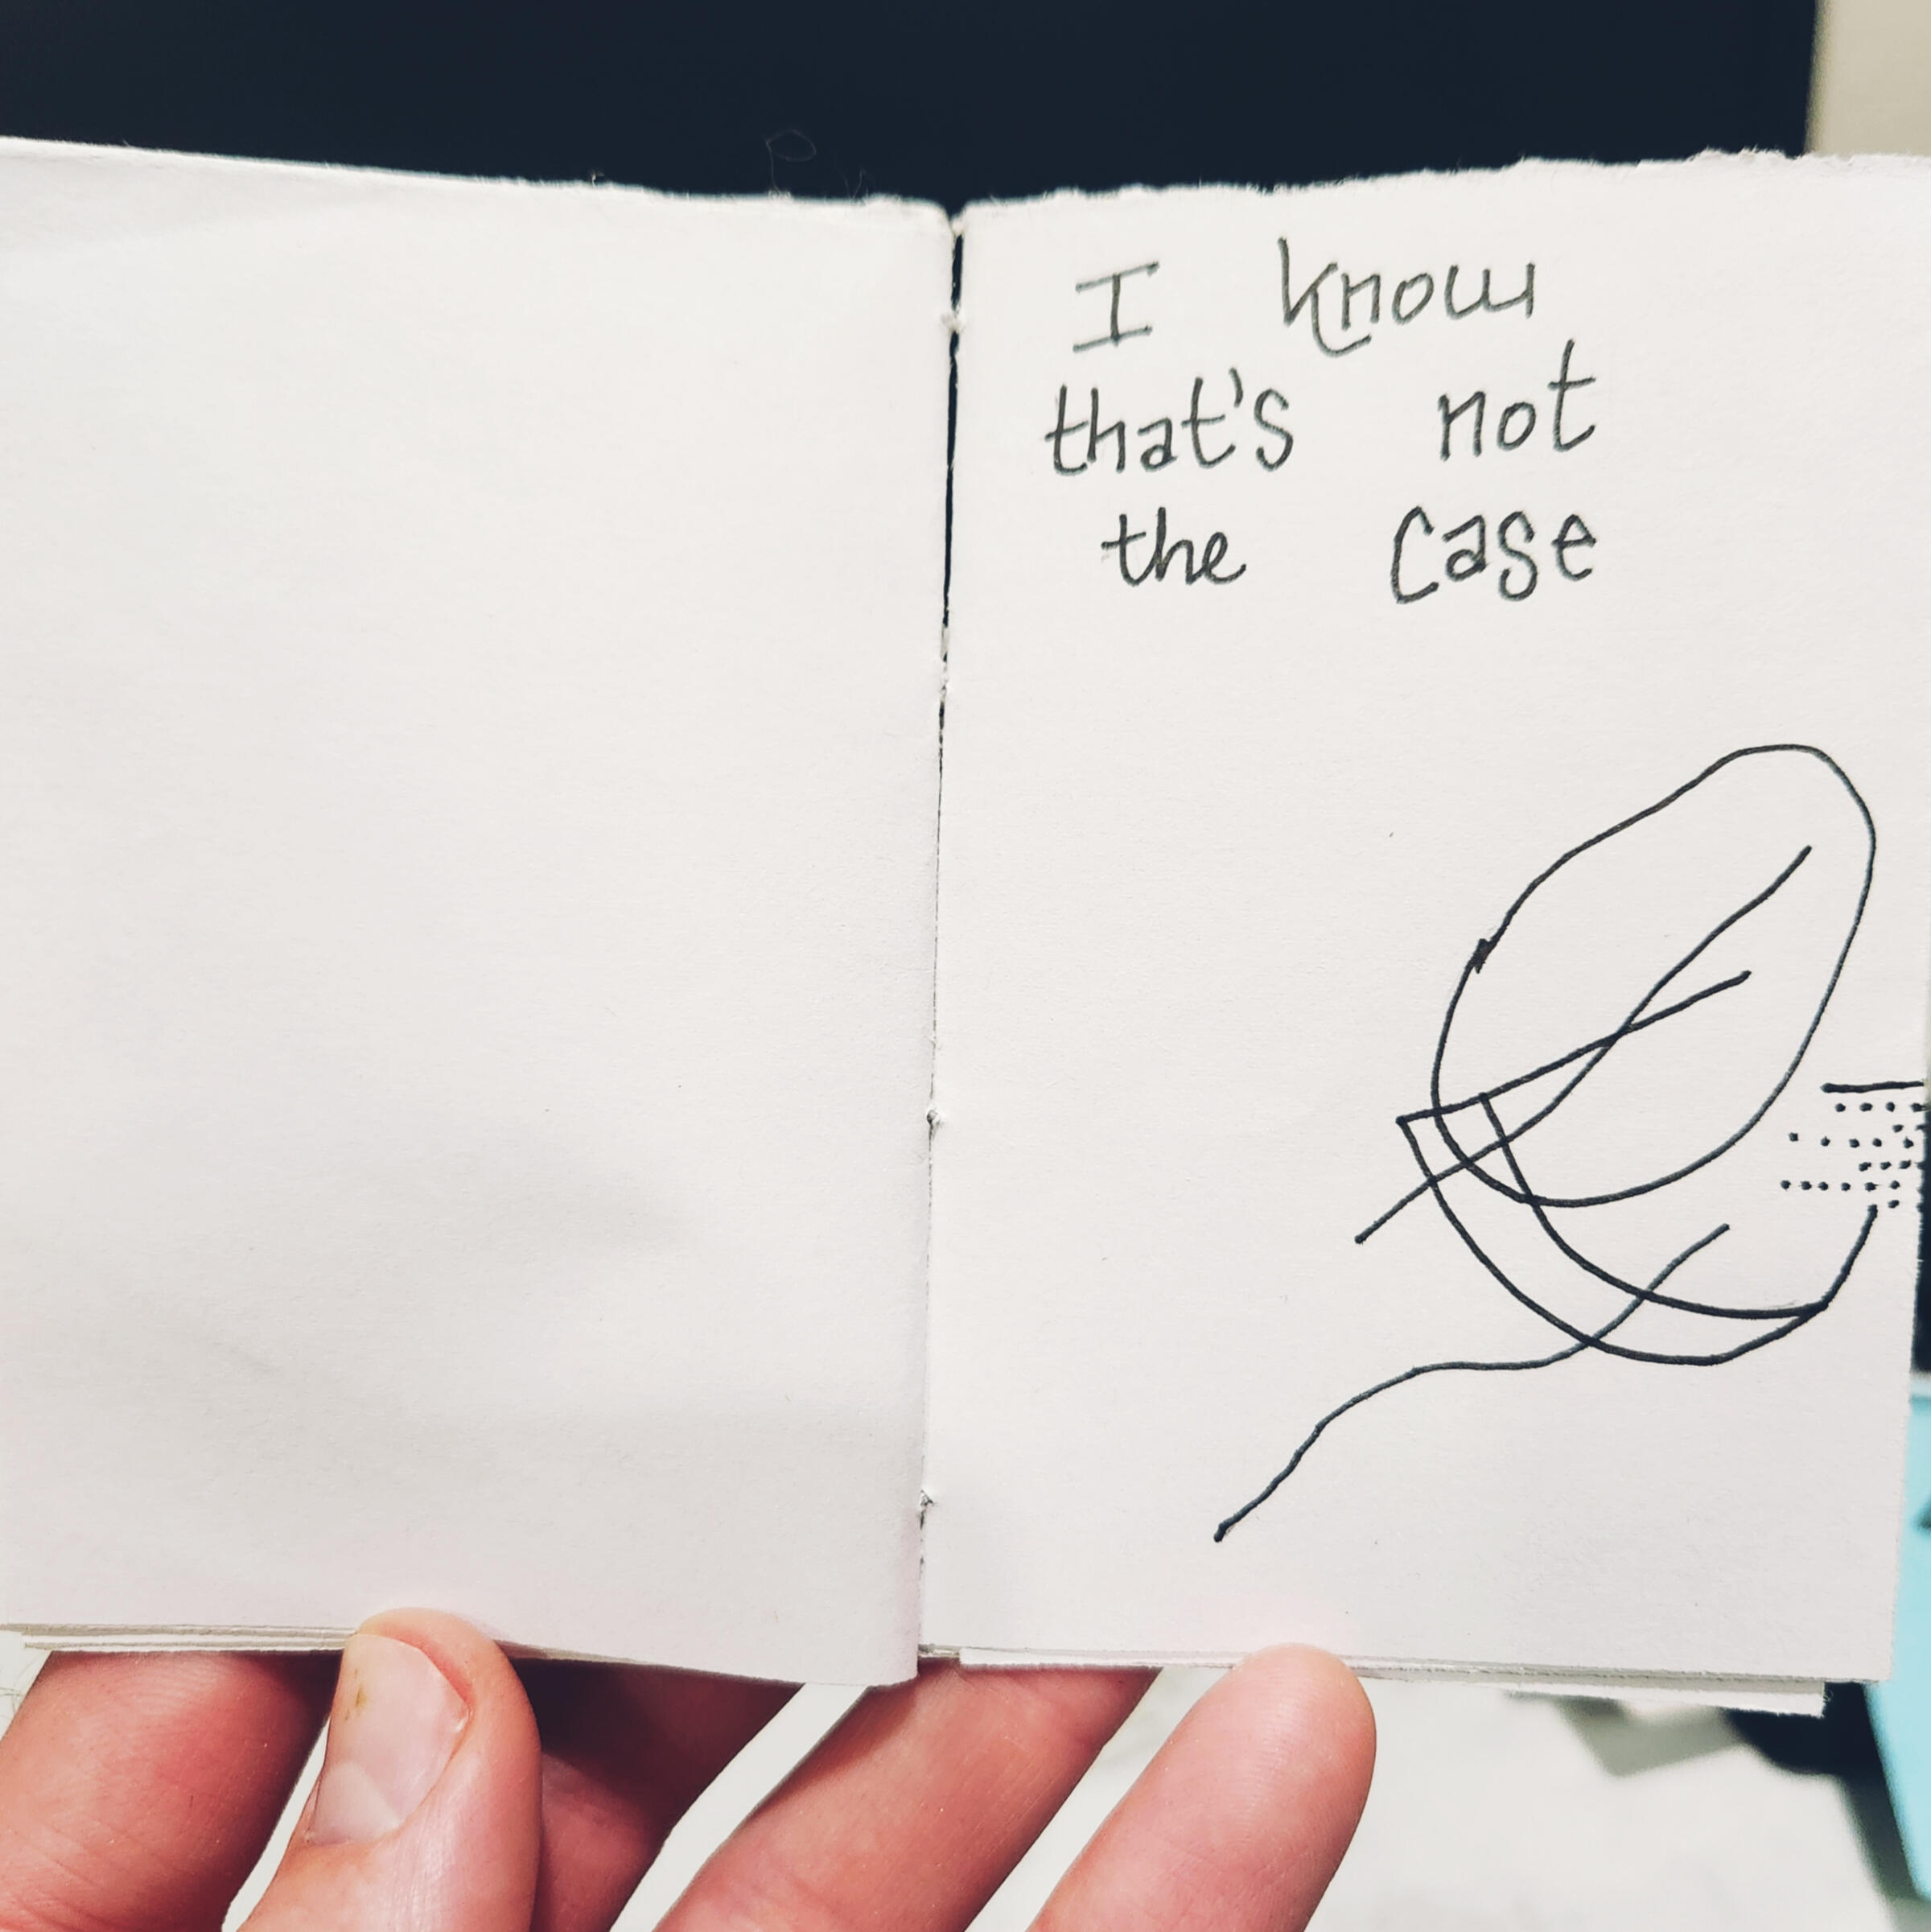 I know
that's not
the case